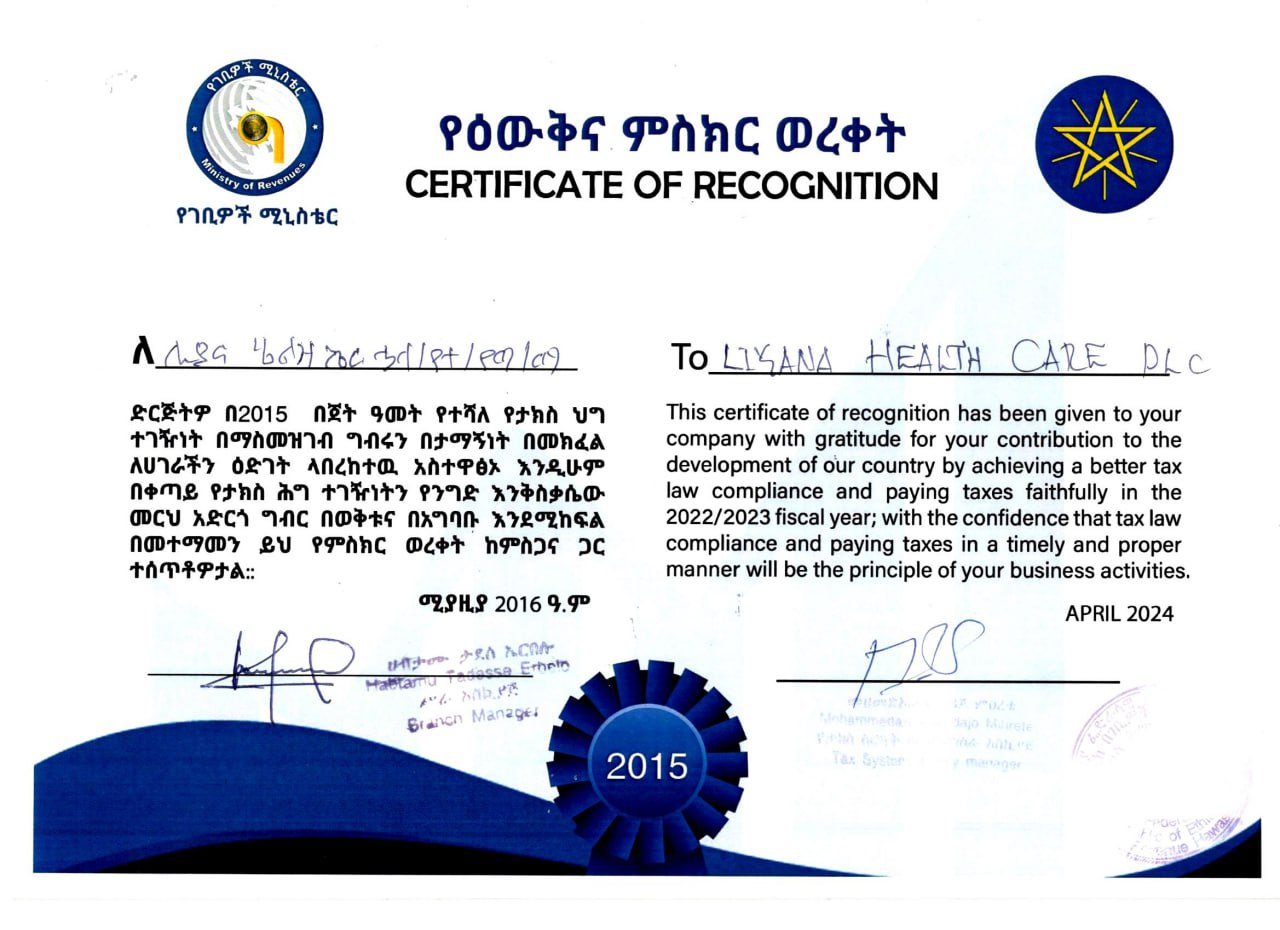 የገቢዎች ሚኒስቴር
Ministry of Revenues
የገቢዎች ሚኒስቴር
የዕውቅና ምስክር ወረቀት
CERTIFICATE OF RECOGNITION
ለ
ድርጅትዎ በ2015 በጀት ዓመት የተሻለ የታክስ ህግ
ተገዥነት በማስመዝገብ ግብሩን በታማኝነት በመክፈል
ለሀገራችን ዕድገት ላበረከተዉ አስተዋፅኦ እንዲሁም
በቀጣይ የታክስ ሕግ ተገዥነትን የንግድ እንቅስቃሴው
መርህ አድርጎ ግብር በወቅቱና በአግባቡ እንደሚከፍል
በመተማመን ይህ የምስክር ወረቀት ከምስጋና ጋር
ተሰጥቶዎታል።
ሚያዚያ 2016 ዓ.ም
To HEALTH CARE PLC
This certificate of recognition has been given to your
company with gratitude for your contribution to the
development of our country by achieving a better tax
law compliance and paying taxes faithfully in the
2022/2023 fiscal year; with the confidence that tax law
compliance and paying taxes in a timely and proper
manner will be the principle of your business activities.
APRIL 2024
ሀብታሙ ታደሰ ኤርበሎ
Habtamu Tadesse Erbelo
ሥራ አስኪያጅ
Branch Manager
Tax System manager
2015